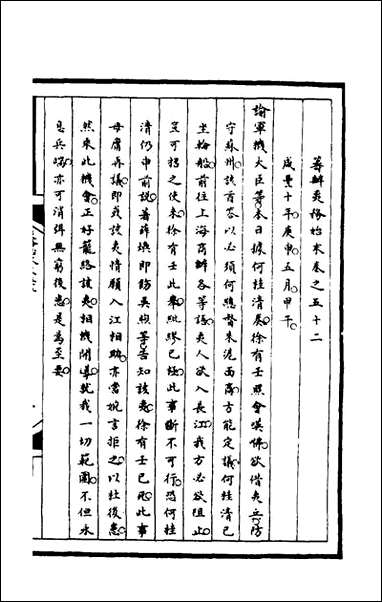 籌辦夷務始末卷之五十二
咸豐十年庚申五月甲午
諭軍機大臣等本日據何桂清奏徐有壬照會嘆咈欲借夷兵防
守蘇州該酋答以必須何總督來滬面商方能定議何桂清已
坐輪船前往上海商辦各等語夷人欲入長江我方必欲阻止
豈可招之使來徐有壬此舉紕繆已極此事斷不可行恐何桂
清仍申前說著薛煥即飭吳煦等告知該夷徐有壬已死此事
毋庸再議即或該夷情願入江相助亦當婉言拒之以杜後患
然來此機會正好籠絡該夷相機開導就我一切範圍不但永
息兵端亦可消弭無窮後患是為至要